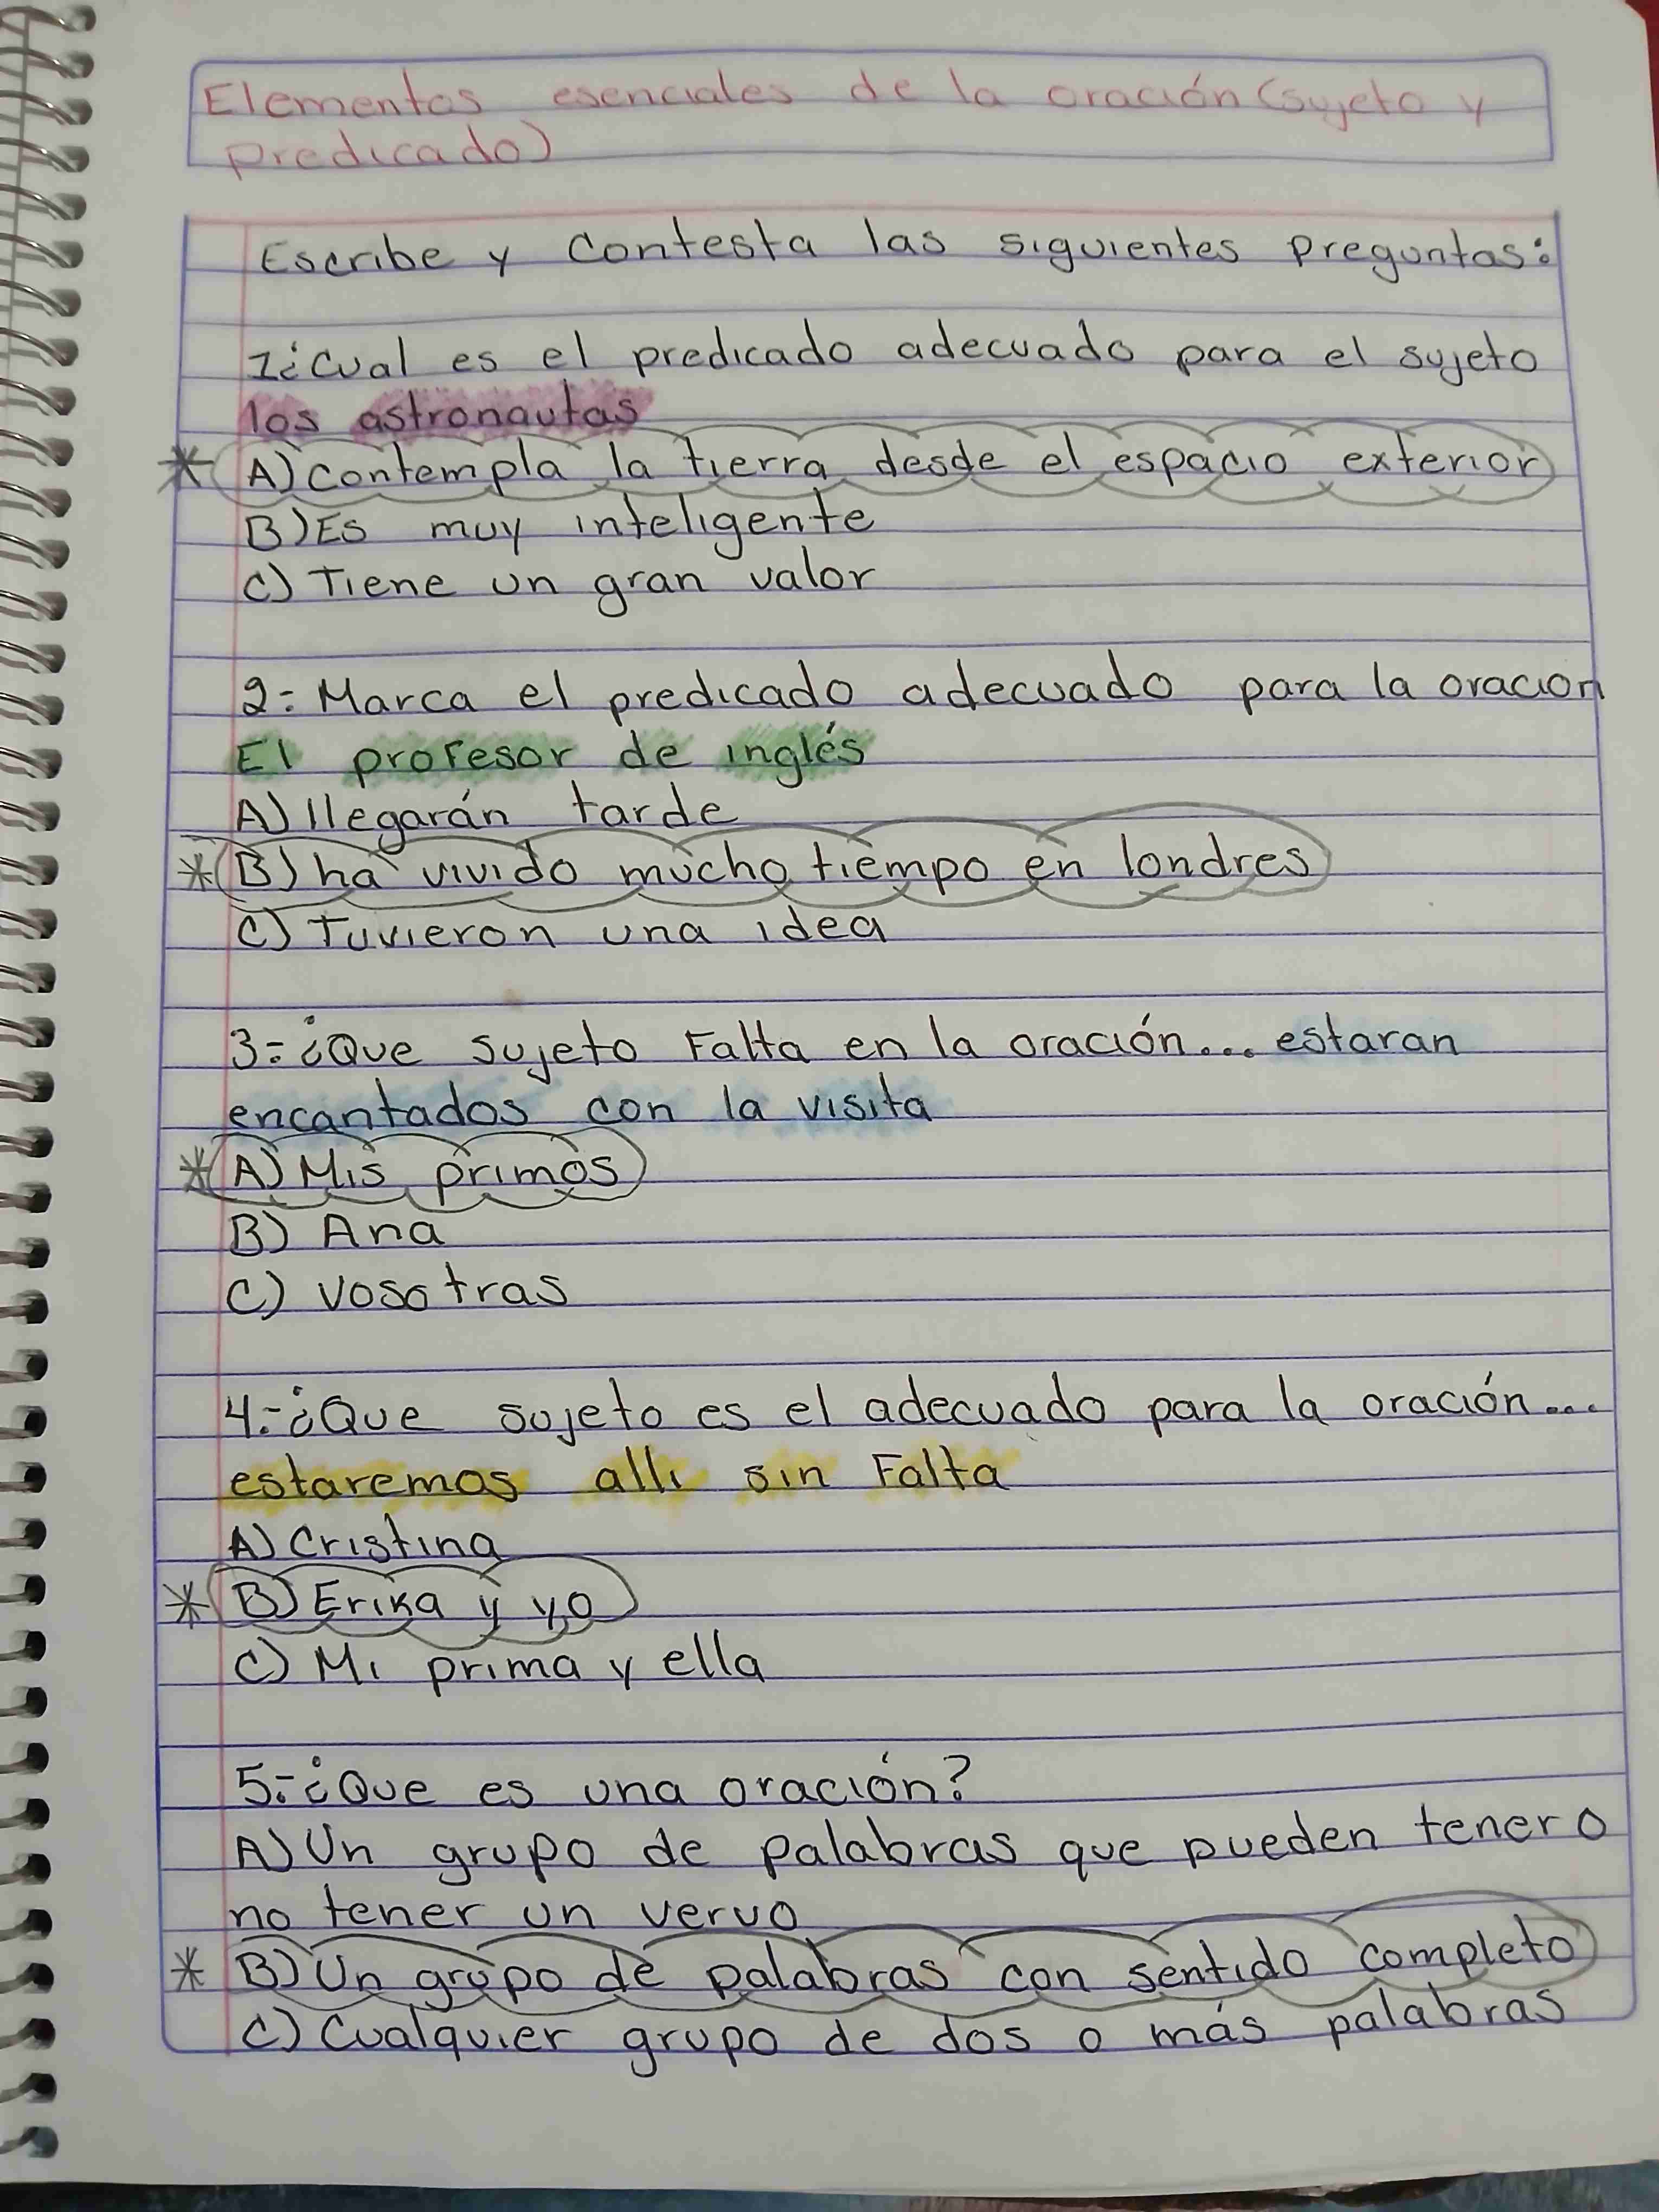 Elementos esenciales de la oración (sujeto y
predicado)
Escribe y contesta las siguientes preguntas:
1¿Cual es el predicado adecuado para el sujeto
los astronautas
* A) contempla la tierra desde el espacio exterior
B) Es muy inteligente
C) Tiene un gran valor
2.- Marca el predicado adecuado para la oracion
El profesor de inglés
A) llegarán tarde
* B) ha vivido mucho tiempo en londres
C) Tuvieron una idea
3.- ¿Que sujeto Falta en la oración... estaran
encantados con la visita
* A) Mis primos
B) Ana
C) vosotras
4.- ¿Que sujeto es el adecuado para la oración...
estaremos alli sin Falta
A) Cristina
* B) Erika y yo
C) Mi prima y ella
5.- ¿Que es una oración?
A) Un grupo de palabras que pueden tener o
no tener un vervo
* B) Un grupo de palabras con sentido completo
C) Cualquier grupo de dos o más palabras